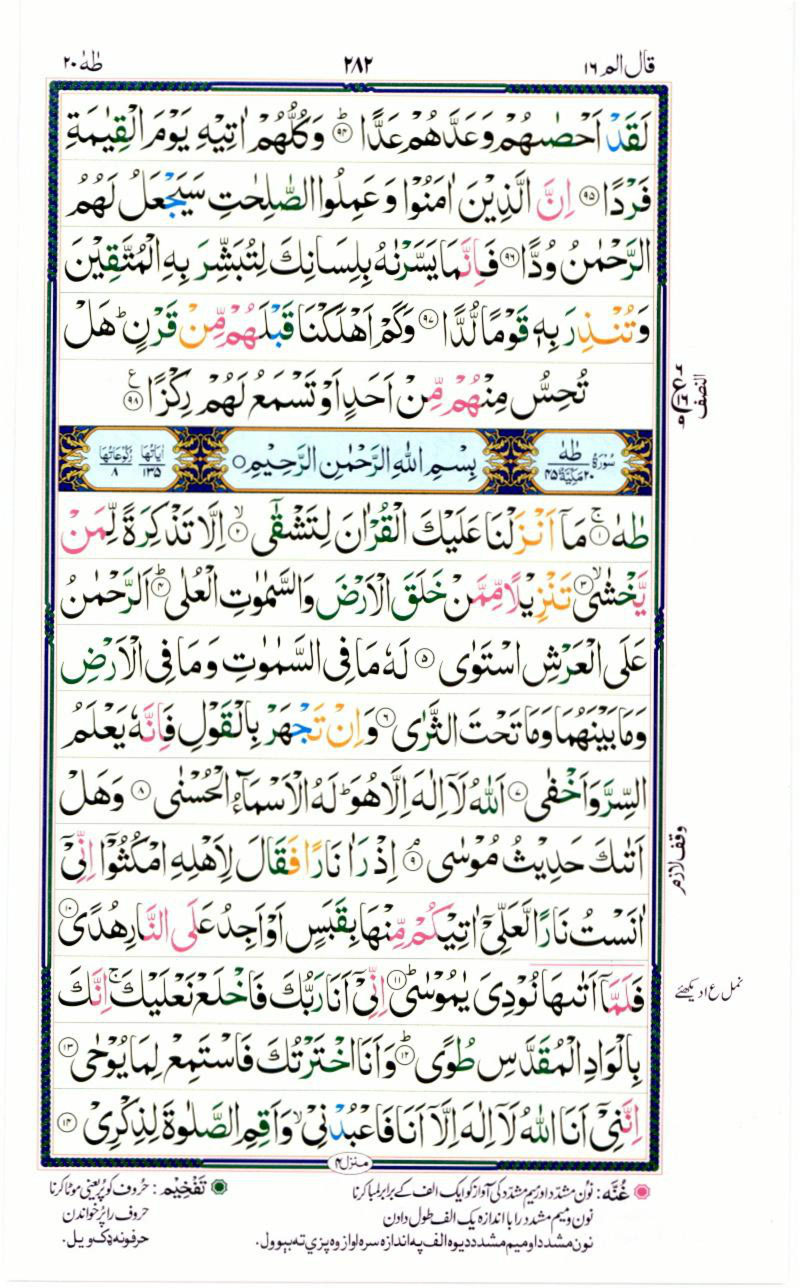 قال الم ١٦
٢٨٢
طٰهٰ ٢٠
لَقَدْ اَحْصٰىهُمْ وَعَدَّهُمْ عَدًّا ؕ ٩٤ وَكُلُّهُمْ اٰتِيْهِ يَوْمَ الْقِيٰمَةِ
فَرْدًا ٩٥ اِنَّ الَّذِيْنَ اٰمَنُوْا وَعَمِلُوا الصّٰلِحٰتِ سَيَجْعَلُ لَهُمُ
الرَّحْمٰنُ وُدًّا ٩٦ فَاِنَّمَا يَسَّرْنٰهُ بِلِسَانِكَ لِتُبَشِّرَ بِهِ الْمُتَّقِيْنَ
وَتُنْذِرَ بِهٖ قَوْمًا لُّدًّا ٩٧ وَكَمْ اَهْلَكْنَا قَبْلَهُمْ مِّنْ قَرْنٍ ؕ هَلْ
تُحِسُّ مِنْهُمْ مِّنْ اَحَدٍ اَوْ تَسْمَعُ لَهُمْ رِكْزًا ٩٨
النصف
سُوْرَةُ طٰهٰ ٢٠ مَكِّيَّةٌ ٤٥
بِسْمِ اللّٰهِ الرَّحْمٰنِ الرَّحِيْمِ
اٰيَاتُهَا ١٣٥
رُكُوْعَاتُهَا ٨
طٰهٰ ۚ ١ مَاۤ اَنْزَلْنَا عَلَيْكَ الْقُرْاٰنَ لِتَشْقٰٓى ۙ ٢ اِلَّا تَذْكِرَةً لِّمَنْ
يَّخْشٰى ۙ ٣ تَنْزِيْلًا مِّمَّنْ خَلَقَ الْاَرْضَ وَالسَّمٰوٰتِ الْعُلٰى ؕ ٤ اَلرَّحْمٰنُ
عَلَى الْعَرْشِ اسْتَوٰى ٥ لَهٗ مَا فِى السَّمٰوٰتِ وَمَا فِى الْاَرْضِ
وَمَا بَيْنَهُمَا وَمَا تَحْتَ الثَّرٰى ٦ وَاِنْ تَجْهَرْ بِالْقَوْلِ فَاِنَّهٗ يَعْلَمُ
السِّرَّ وَاَخْفٰى ٧ اَللّٰهُ لَاۤ اِلٰهَ اِلَّا هُوَ ؕ لَهُ الْاَسْمَآءُ الْحُسْنٰى ٨ وَهَلْ
اَتٰىكَ حَدِيْثُ مُوْسٰى ۘ ٩ اِذْ رَاٰ نَارًا فَقَالَ لِاَهْلِهِ امْكُثُوْۤا اِنِّىْۤ
وقف لازم
اٰنَسْتُ نَارًا لَّعَلِّىْۤ اٰتِيْكُمْ مِّنْهَا بِقَبَسٍ اَوْ اَجِدُ عَلَى النَّارِ هُدًى ١٠
فَلَمَّاۤ اَتٰىهَا نُوْدِىَ يٰمُوْسٰى ؕ ١١ اِنِّىْۤ اَنَا رَبُّكَ فَاخْلَعْ نَعْلَيْكَ ۚ اِنَّكَ
نمل ع ١ دیکھئے
بِالْوَادِ الْمُقَدَّسِ طُوًى ؕ ١٢ وَاَنَا اخْتَرْتُكَ فَاسْتَمِعْ لِمَا يُوْحٰى ١٣
اِنَّنِىْۤ اَنَا اللّٰهُ لَاۤ اِلٰهَ اِلَّاۤ اَنَا فَاعْبُدْنِىْ ۙ وَاَقِمِ الصَّلٰوةَ لِذِكْرِىْ ١٤
منزل ٤
غُنَّه: نون مشدد اور میم مشدد کی آواز کو ایک الف کے برابر لمبا کرنا
نون و میم مشدد را با اندازہ یک الف طول دادن
نون مشدد او میم مشدد دیوه الف په اندازه سره اواز وه پزي ته بېوول.
تَفْخِيْم: حُروف کو پُر یعنی موٹا کرنا
حروف را پُر خواندن
حرفونه ډک ویل.